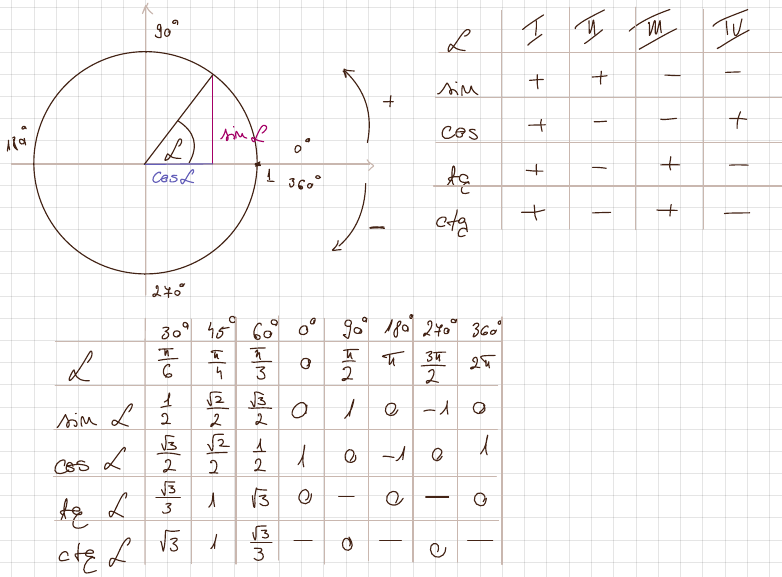 90°
180°
α
sin α
cos α
1
0°
360°
270°
+
−
α I II III IV
sin + + − −
cos + − − +
tg + − + −
ctg + − + −
30° 45° 60° 0° 90° 180° 270° 360°
α π/6 π/4 π/3 0 π/2 π 3π/2 2π
sin α 1/2 √2/2 √3/2 0 1 0 −1 0
cos α √3/2 √2/2 1/2 1 0 −1 0 1
tg α √3/3 1 √3 0 − 0 − 0
ctg α √3 1 √3/3 − 0 − 0 −